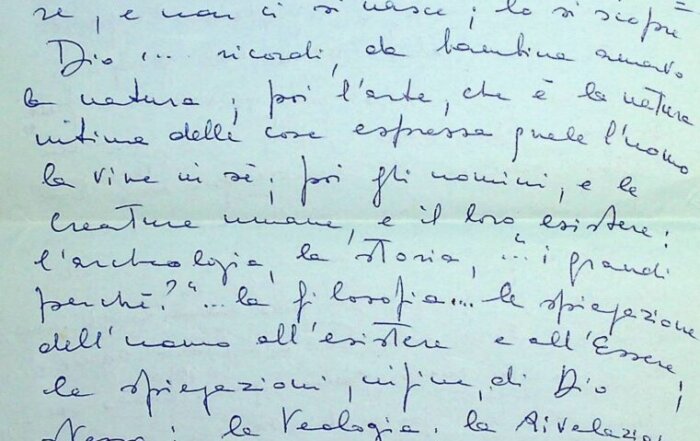 se, e non ci si nasce; lo si scopre
Dio ... ricordi, da bambina amavo
la natura; poi l'arte, che è la natura
intima delle cose espressa quale l'uomo
la vive in sè; poi gli uomini, e le
creature umane, e il loro esistere:
l'archeologia, la storia, ..."i grandi
perchè?"...la filosofia... le spiegazione
dell'uomo all'esistere e all'Essere,
le spiegazioni, infine, di Dio
stesso: la Teologia, la Rivelazio